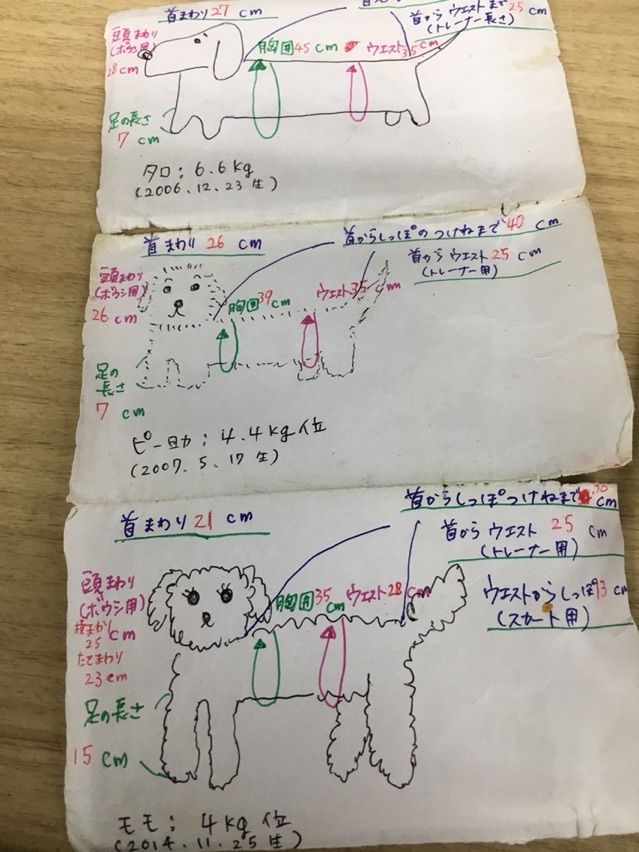 首まわり 27 cm
首から ウエストまで 25 cm
(トレーナー長さ)
頭まわり
(ボウシ用)
28 cm
胸囲 45 cm
ウエスト 35 cm
足の長さ
7 cm
タロ: 6.6kg
(2006.12.23 生)
首まわり 26 cm
首からしっぽの つけねまで 40 cm
首から ウエスト 25 cm
(トレーナー用)
頭まわり
(ボウシ用)
26 cm
胸囲 39 cm
ウエスト 35 cm
足の
長さ
7 cm
ピー助: 4.4kg 位
(2007.5.17 生)
首からしっぽつけねまで 30 cm
首まわり 21 cm
首から ウエスト 25 cm
(トレーナー用)
ウエストからしっぽ 13 cm
(スカート用)
頭まわり
(ボウシ用)
横まわり
25 cm
たてまわり
23cm
胸囲 35 cm
ウエスト 28 cm
足の長さ
15 cm
モモ: 4kg 位
(2014.11.25 生)